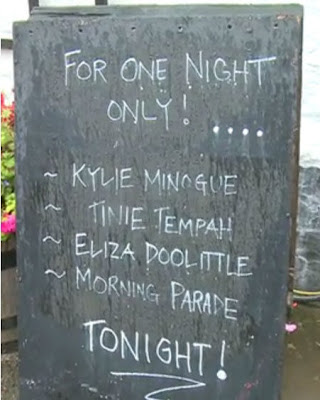 FOR ONE NIGHT
ONLY! ....
~ KYLIE MINOGUE
~ TINIE TEMPAH
~ ELIZA DOOLITTLE
~ MORNING PARADE
TONIGHT!